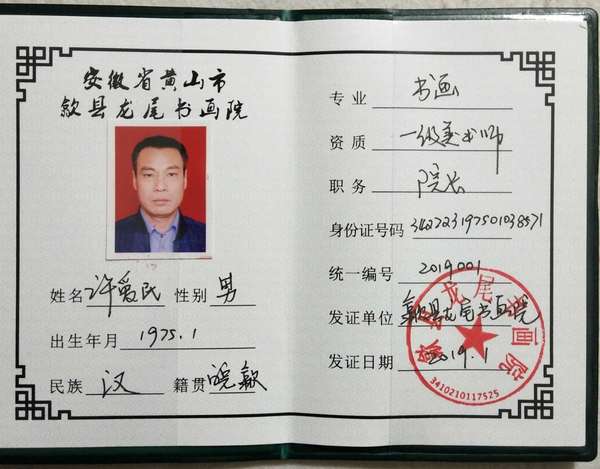 安徽省黄山市
歙县龙尾书画院
姓名 许禹民 性别 男
出生年月 1975.1
民族 汉 籍贯 皖歙
专业 书画
资质 一级美术师
职务 院长
身份证号码 342723197501038571
统一编号 2019001
发证单位 歙县龙尾书画院
发证日期 2019.1
歙县龙尾书画院
3410210117525